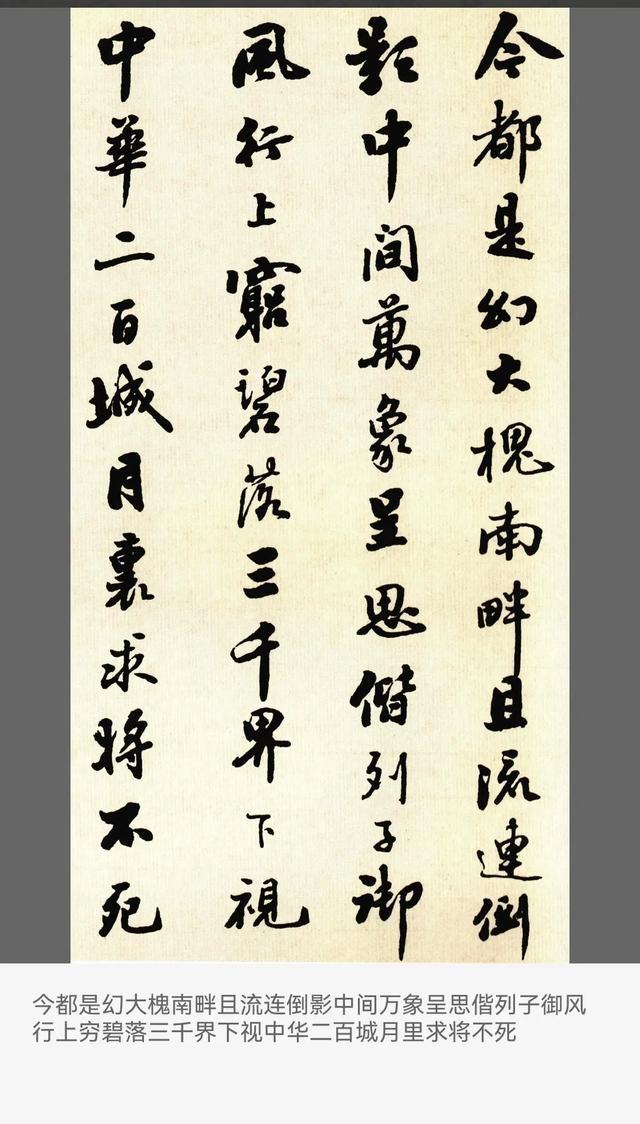 今都是幻大槐南畔且流連倒
影中間萬象呈思偕列子御
風行上窮碧落三千界下視
中華二百城月裏求將不死
今都是幻大槐南畔且流连倒影中间万象呈思偕列子御风
行上穷碧落三千界下视中华二百城月里求将不死